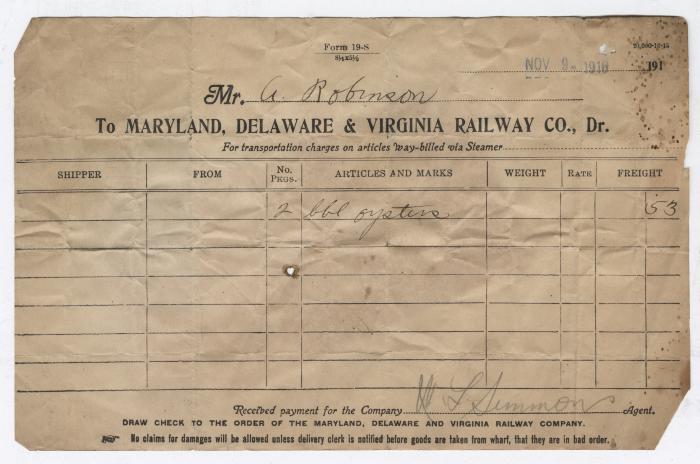 Form 19-S
8½x5½
20,000-10-15
NOV 9 - 1916 191
Mr. A. Robinson
To MARYLAND, DELAWARE & VIRGINIA RAILWAY CO., Dr.
For transportation charges on articles way-billed via Steamer
SHIPPER FROM No. PKGS. ARTICLES AND MARKS WEIGHT RATE FREIGHT
2 bbl oysters 53
Received payment for the Company L Simmons Agent.
DRAW CHECK TO THE ORDER OF THE MARYLAND, DELAWARE AND VIRGINIA RAILWAY COMPANY.
No claims for damages will be allowed unless delivery clerk is notified before goods are taken from wharf, that they are in bad order.